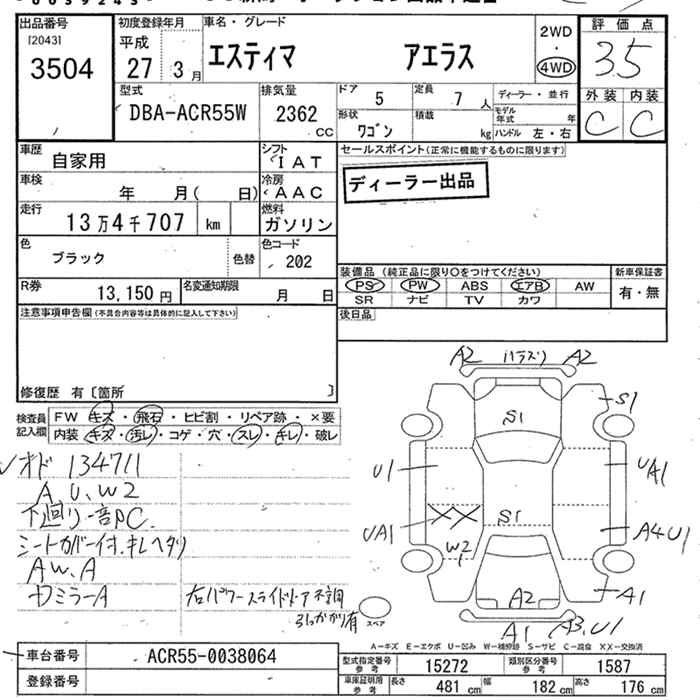 出品番号
[2043]
3504
初度登録年月
平成
27 3月
車名・グレード
エスティマ アエラス
2WD
4WD
評価点
3.5
外装 内装
C C
型式
DBA-ACR55W
排気量
2362
CC
ドア 5
定員 7人
形状
ワゴン
積載
kg
ディーラー・並行
モデル年式 年
ハンドル 左・右
車歴
自家用
シフト
IAT
車検
年 月( 日)
冷房
AAC
走行
13万4千707 km
燃料
ガソリン
色
ブラック
色替
色コード
202
R券
13,150円
名変通知期限
月 日
セールスポイント(正常に機能するものに限ります)
ディーラー出品
装備品(純正品に限り○をつけてください)
PS PW ABS エアB AW
SR ナビ TV カワ
新車保証書
有・無
後日品
注意事項申告欄(不具合内容等は具体的に記入して下さい)
修復歴 有〔箇所 〕
検査員記入欄
FW キズ・飛石・ヒビ割・リペア跡・×要
内装 キズ・汚レ・コゲ・穴・スレ・キレ・破レ
オド 134711
A U、W2
下回り一部PC.
シートカバー付.キレヘタリ
AW、A
ドミラーA
右パワースライドドア不調
引っかかり有
A2 ハラズリ A2
S1
S1
U1
UA1
UA1
S1
W2
A4 U1
A2
A1
A1
A3、U1
スペア
A－キズ E－エクボ U－凹み W－補修跡 S－サビ C－腐食 XX－交換済
車台番号
ACR55-0038064
登録番号
型式指定番号
参考
15272
類別区分番号
参考
1587
車庫証明用
参考
長さ 481 cm
幅 182 cm
高さ 176 cm